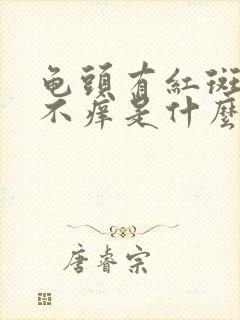 龟頭有紅斑
不痒是什麼
唐睿宗